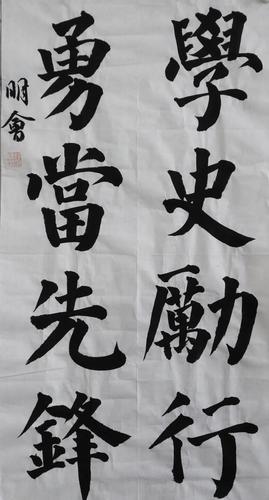 學史勵行
勇當先鋒
明會